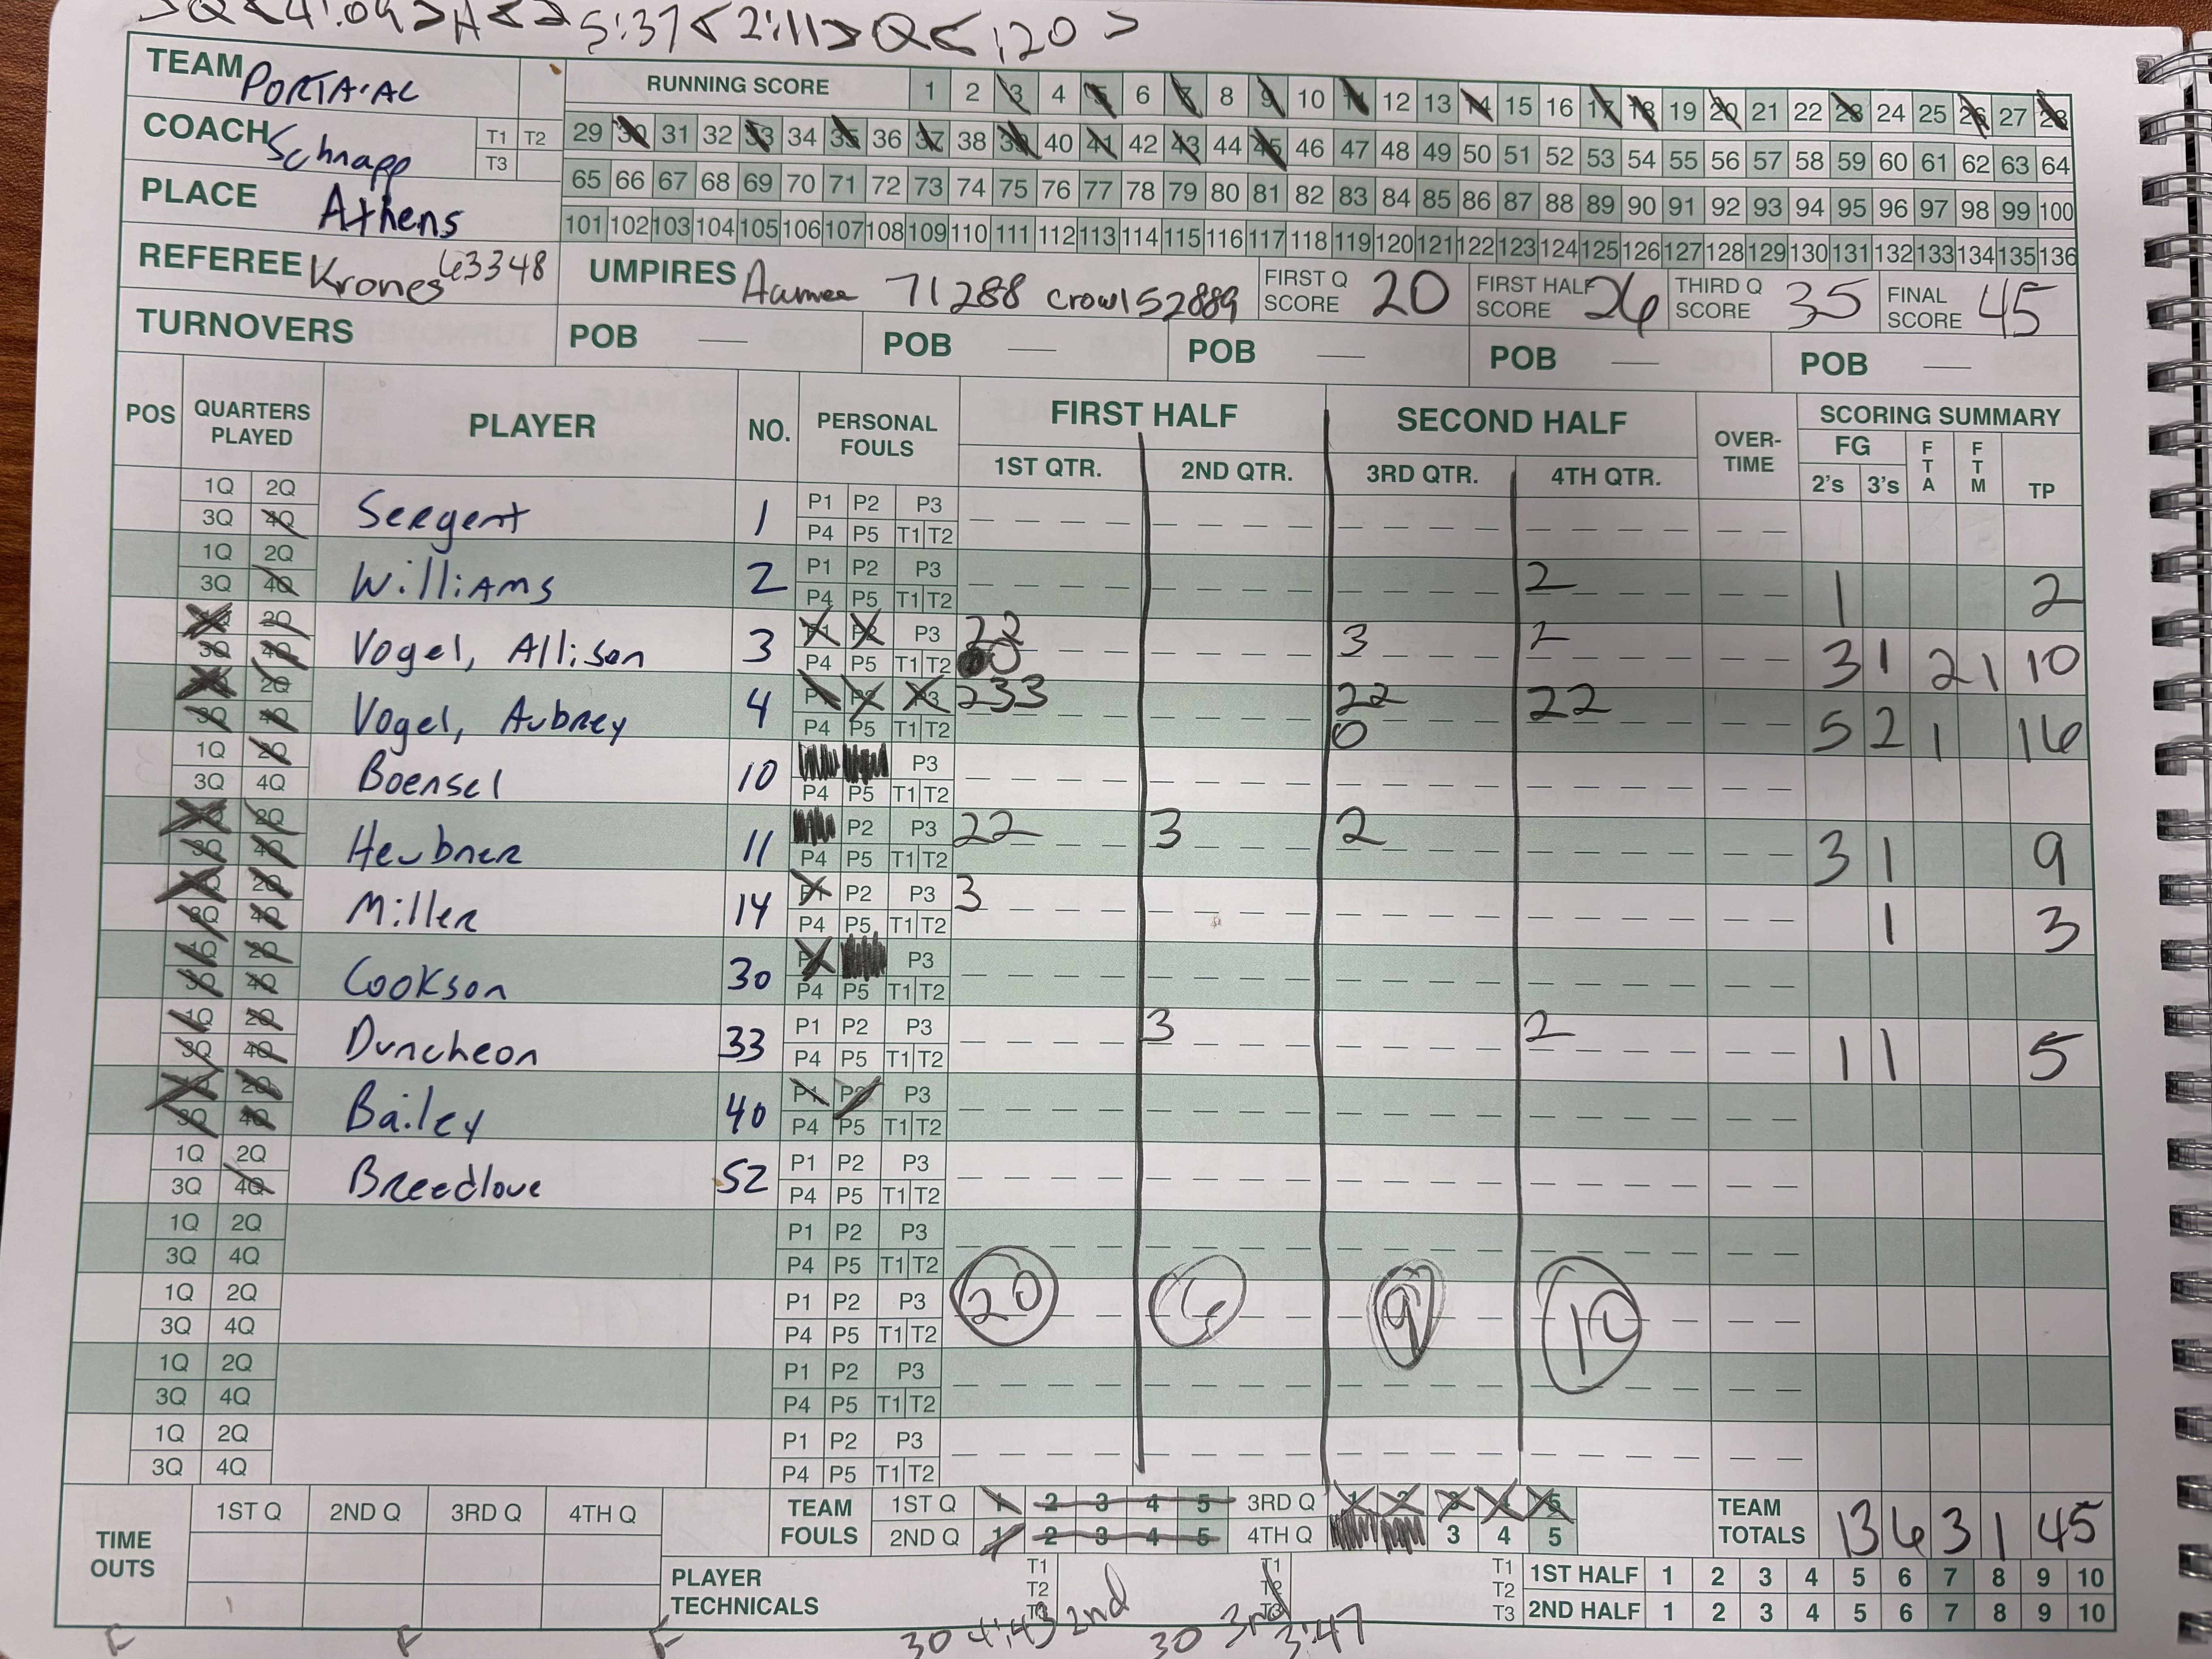 >Q<4:09>A<2 5:37<2:11>Q<:20>
TEAM PORTA·AC
RUNNING SCORE 1 2 3 4 5 6 7 8 9 10 11 12 13 14 15 16 17 18 19 20 21 22 23 24 25 26 27 28
COACH Schnapp T1 T2 T3
29 30 31 32 33 34 35 36 37 38 39 40 41 42 43 44 45 46 47 48 49 50 51 52 53 54 55 56 57 58 59 60 61 62 63 64
PLACE Athens
65 66 67 68 69 70 71 72 73 74 75 76 77 78 79 80 81 82 83 84 85 86 87 88 89 90 91 92 93 94 95 96 97 98 99 100
101 102 103 104 105 106 107 108 109 110 111 112 113 114 115 116 117 118 119 120 121 122 123 124 125 126 127 128 129 130 131 132 133 134 135 136
REFEREE Krones 63348 UMPIRES 71288 crowl 52889 FIRST Q SCORE 20 FIRST HALF SCORE 26 THIRD Q SCORE 35 FINAL SCORE 45
TURNOVERS POB — POB — POB — POB — POB —
POS QUARTERS PLAYED PLAYER NO. PERSONAL FOULS FIRST HALF SECOND HALF OVER-TIME SCORING SUMMARY
1ST QTR. 2ND QTR. 3RD QTR. 4TH QTR. FG 2's 3's FTA FTM TP
1Q 2Q P1 P2 P3
3Q 4Q Sergent 1 P4 P5 T1 T2
1Q 2Q P1 P2 P3 2
3Q 4Q Williams 2 P4 P5 T1 T2 1 2
1Q 2Q P1 P2 P3 22 3 2
3Q 4Q Vogel, Allison 3 P4 P5 T1 T2 0 3 1 2 1 10
1Q 2Q P1 P2 P3 233 22 22
3Q 4Q Vogel, Aubrey 4 P4 P5 T1 T2 0 5 2 1 16
1Q 2Q P3
3Q 4Q Boensel 10 P4 P5 T1 T2
1Q 2Q P2 P3 22 3 2
3Q 4Q Heubner 11 P4 P5 T1 T2 3 1 9
1Q 2Q P1 P2 P3 3
3Q 4Q Miller 14 P4 P5 T1 T2 1 3
1Q 2Q P1 P3
3Q 4Q Cookson 30 P4 P5 T1 T2
1Q 2Q P1 P2 P3 3 2
3Q 4Q Duncheon 33 P4 P5 T1 T2 1 1 5
1Q 2Q P1 P2 P3
3Q 4Q Bailey 40 P4 P5 T1 T2
1Q 2Q P1 P2 P3
3Q 4Q Breedlove 52 P4 P5 T1 T2
1Q 2Q P1 P2 P3
3Q 4Q P4 P5 T1 T2
1Q 2Q P1 P2 P3 20 6 9 10
3Q 4Q P4 P5 T1 T2
1Q 2Q P1 P2 P3
3Q 4Q P4 P5 T1 T2
1Q 2Q P1 P2 P3
3Q 4Q P4 P5 T1 T2
TIME OUTS 1ST Q 2ND Q 3RD Q 4TH Q
TEAM FOULS 1ST Q 1 2 3 4 5 3RD Q 1 2 3 4 5
2ND Q 1 2 3 4 5 4TH Q 3 4 5
TEAM TOTALS 13 6 3 1 45
PLAYER TECHNICALS T1 T2 T3 T1 T2 T3 T1 T2 T3
1ST HALF 1 2 3 4 5 6 7 8 9 10
2ND HALF 1 2 3 4 5 6 7 8 9 10
F F F 30 4:43 2nd 30 3rd 3:47